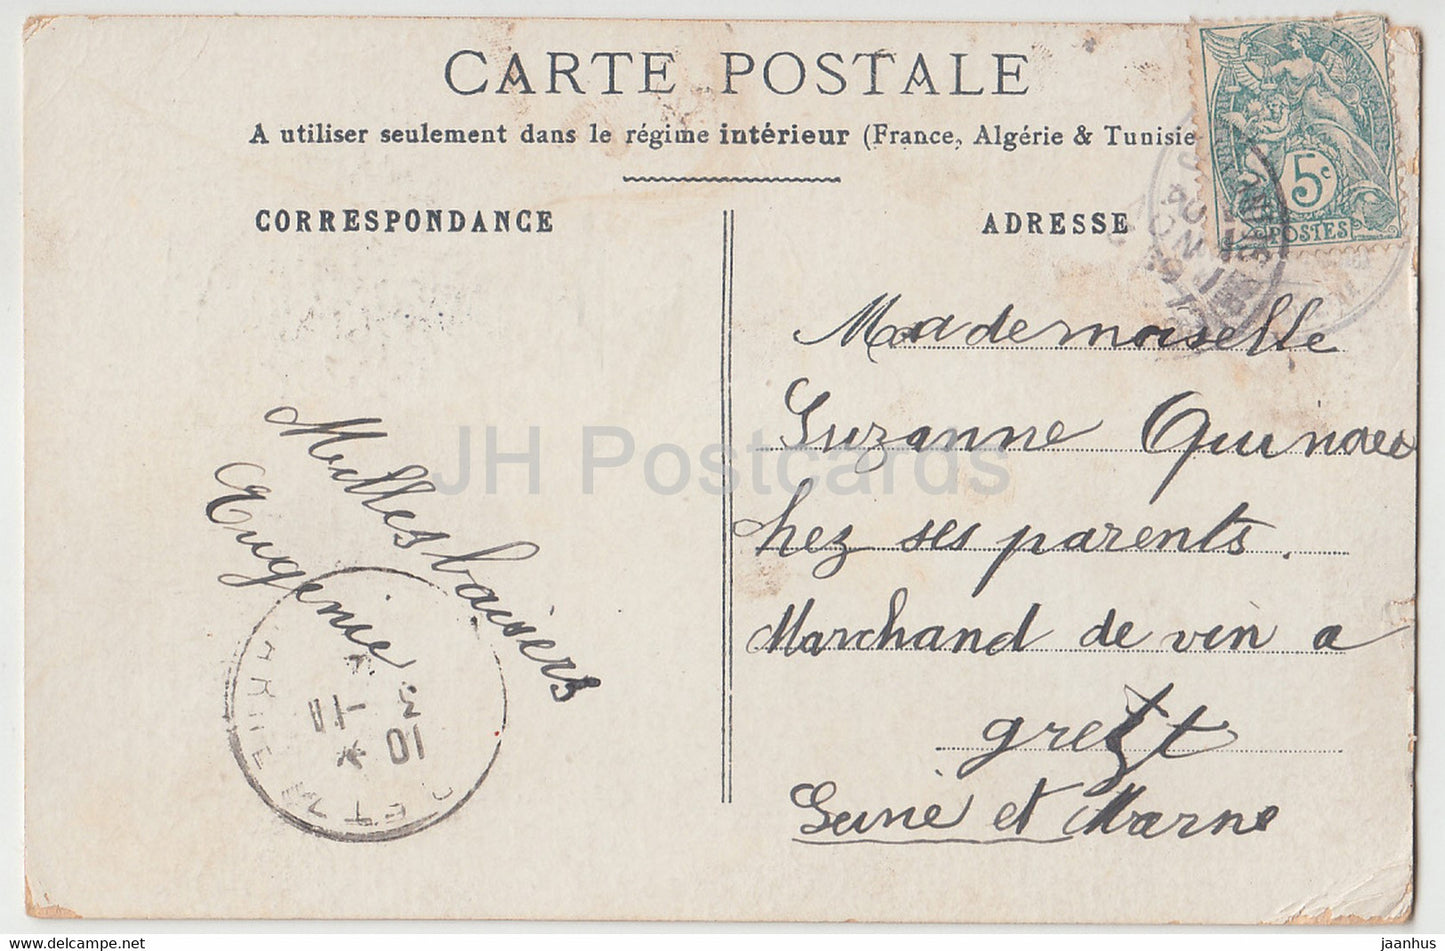 CARTE POSTALE
A utiliser seulement dans le régime intérieur (France, Algérie & Tunisie
CORRESPONDANCE
ADRESSE
5c
POSTES
Mademoiselle
Suzanne
chez ses parents.
Marchand de vin a
gretzt
Seine et Marne
Milles baisers
Eugenie
JH Postcards
jaanhus